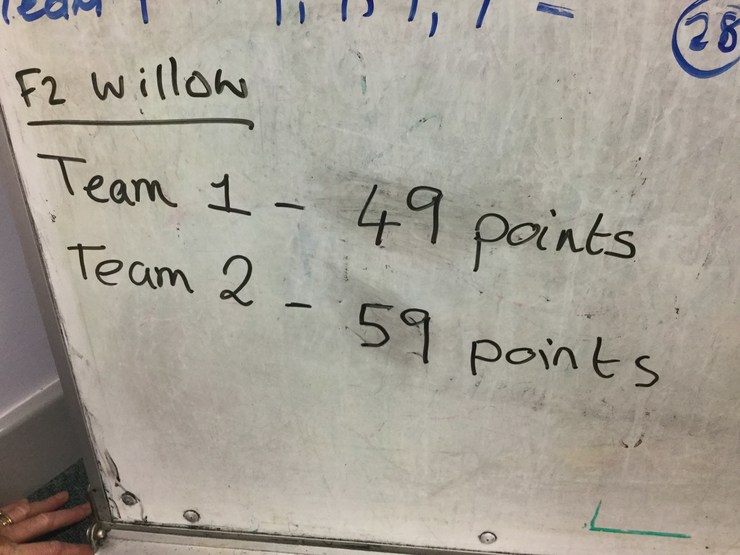 28
F2 Willow
Team 1 - 49 points
Team 2 - 59 points